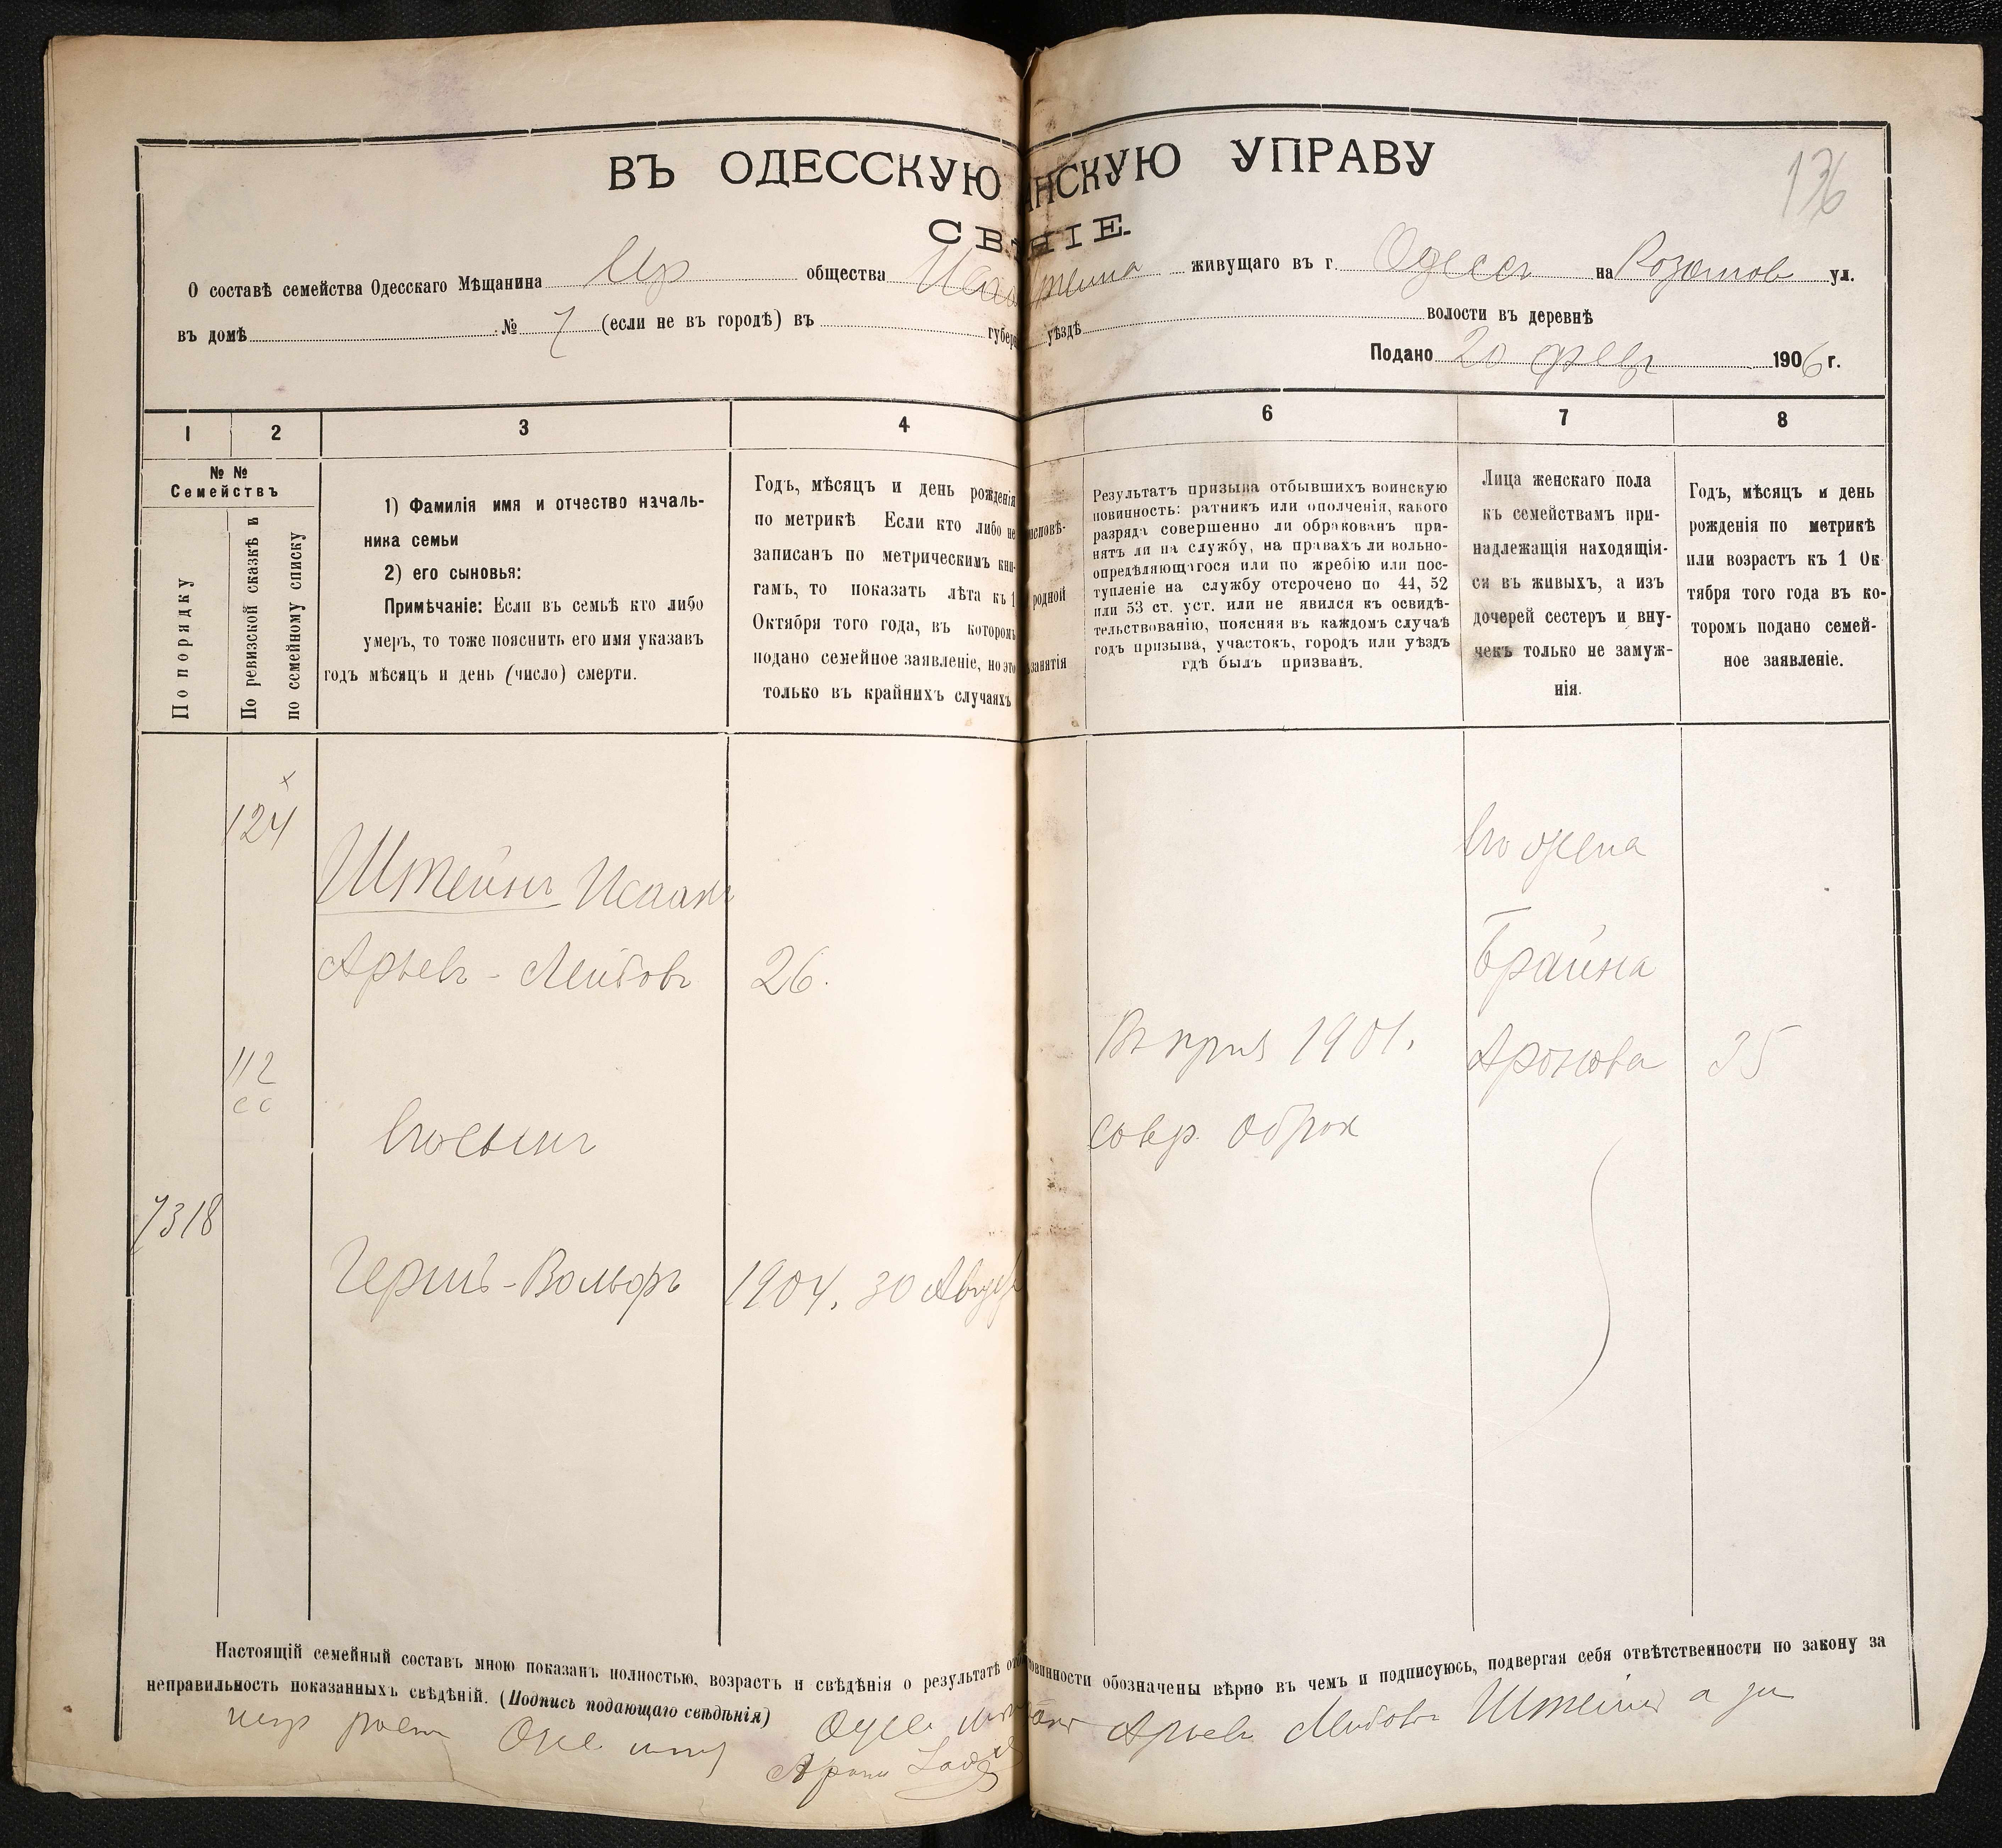 136
ВЪ ОДЕССКУЮ НСКУЮ УПРАВУ
СВ НІЕ.
О составѣ семейства Одесскаго Мѣщанина Евр общества Штейна живущаго въ г. Одессѣ на ул.
въ домѣ № 7 (если не въ городѣ) въ губер уѣздѣ волости въ деревнѣ
Подано 20 февр 1906 г.
1 2 3 4 6 7 8
№ № Семействъ
По порядку
По ревизской сказкѣ и
по семейному списку
1) Фамилія имя и отчество началь-
ника семьи
2) его сыновья:
Примѣчаніе: Если въ семьѣ кто либо
умеръ, то тоже пояснить его имя указавъ
годъ мѣсяцъ и день (число) смерти.
Годъ, мѣсяцъ и день рожденія
по метрикѣ Если кто либо не
записанъ по метрическимъ кни-
гамъ, то показать лѣта къ 1
Октября того года, въ которомъ
подано семейное заявленіе, но это
только въ крайнихъ случаяхъ
исповѣ-
родной
занятія
Результатъ призыва отбывшихъ воинскую
повинность: ратникъ или ополченія, какого
разряда совершенно ли обракованъ при-
нятъ ли на службу, на правахъ ли вольно-
опредѣляющагося или по жребію или пос-
тупленіе на службу отсрочено по 44, 52
или 53 ст. уст. или не явился къ освидѣ-
тельствованію, поясняя въ каждомъ случаѣ
годъ призыва, участокъ, городъ или уѣздъ
гдѣ былъ призванъ.
Лица женскаго пола
къ семействамъ при-
надлежащія находящія-
ся въ живыхъ, а изъ
дочерей сестеръ и вну-
чекъ только не замуж-
нія.
Годъ, мѣсяцъ и день
рожденія по метрикѣ
или возрастъ къ 1 Ок-
тября того года въ ко-
торомъ подано семей-
ное заявленіе.
124
Его жена
Штейнъ Исаакъ
Арьевъ - Лейбовъ 26. Брайна
112
Въ приз 1901. Аронова 25
Его сынъ
совр. обрак
7318
Гершъ-Вольфъ 1904, 30 Август
Настоящій семейный составъ мною показанъ полностью, возрастъ и свѣдѣнія о результатѣ от овинности обозначены вѣрно въ чемъ и подписуюсь, подвергая себя отвѣтственности по закону за
неправильность показанныхъ свѣдѣній. (Подпись подающаго свѣдѣнія)
Арьевъ Лейбовъ Штейнъ а